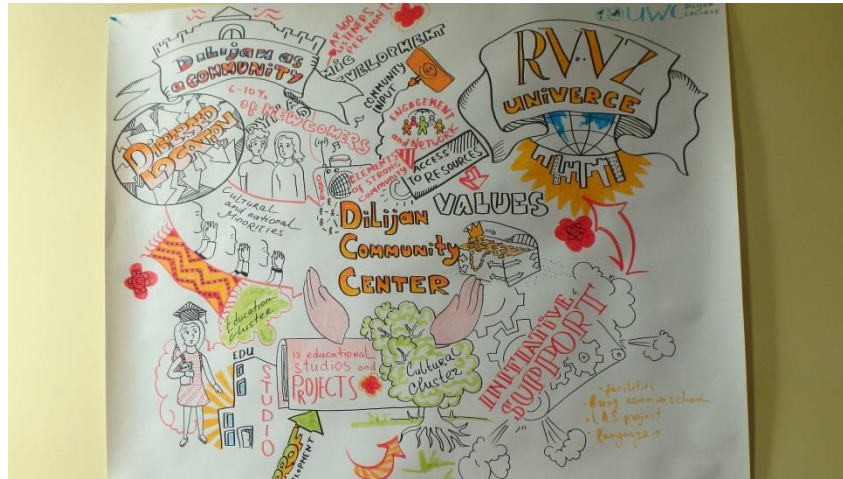 DILIJAN as
a COMMUNITY
AP. 400
LISTENERS
PER MONTH
DEVELOPMENT
COMMUNITY
INPUT
UWC Dilijan
College
RVVZ
UNIVERCE
6-10%
OF NEWCOMERS
DISPERSED
LOCATION
ENGAGEMENT
and NETWORK
ELEMENTS
of STRONG
COMMUNITY
ACCESS
TO RESOURCES
VALUES
Cultural
and national
MINORITIES
DILIJAN
COMMUNITY
CENTER
Education
Cluster
EDU
STUDIO
13 educational
studios and
PROJECTS
Cultural
Cluster
INITIATIVE
SUPPORT
• facilities
• Bring comm → school
• project
• language →
PROF